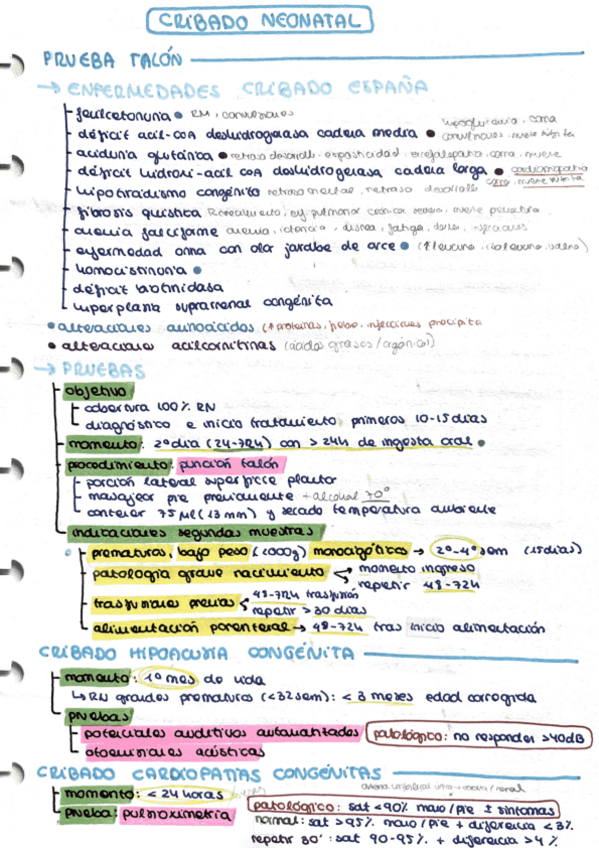 CRIBADO NEONATAL
PRUEBA TALÓN
→ ENFERMEDADES CRIBADO ESPAÑA
fenilcetonuria • RM, convulsiones
déficit acil-coA deshidrogenasa cadena media • hipoglucemia, coma convulsiones, muerte súbita
aciduria glutárica • retraso desarrollo, espasticidad, encefalopatía, coma, muerte
déficit hidroxi-acil coA deshidrogenasa cadena larga • cardiomiopatía coma, muerte súbita
hipotiroidismo congénito retraso mental, retraso desarrollo
fibrosis quística enf pulmonar crónica severa, muerte prematura
anemia falciforme anemia, ictericia, disnea, fatiga, dolor, infecciones
enfermedad orina con olor jarabe de arce • (↑ leucina, isoleucina, valina)
homocistinuria •
déficit biotinidasa
hiperplasia suprarrenal congénita
• alteraciones aminoácidos (↑ proteínas, fiebre, infecciones precipita
• alteraciones acilcarnitinas (ácidos grasos / orgánicos)
→ PRUEBAS
objetivo
cobertura 100% RN
diagnóstico e inicio tratamiento primeros 10-15 días
momento: 2º día (24-72h) con > 24h de ingesta oral •
procedimiento: punción talón
porción lateral superficie plantar
masajear pie previamente + alcohol 70º
contener 75 µl (13 mm) y secado temperatura ambiente
indicaciones segundas muestras
• prematuros, bajo peso (<1000g) monocigóticos → 2º-4º sem (15 días)
patología grave nacimiento momento ingreso
repetir 48-72h
trasfusiones previas 48-72h trasfusión
repetir > 30 días
alimentación parenteral → 48-72h tras inicio alimentación
CRIBADO HIPOACUSIA CONGÉNITA
momento: 1º mes de vida
↳ RN grandes prematuros (<32 sem): < 3 meses edad corregida
pruebas
potenciales auditivos automatizados patológico: no responder >40dB
otoemisiones acústicas
CRIBADO CARDIOPATÍAS CONGÉNITAS
momento: < 24 horas
prueba: pulsioximetría
patológico: sat <90% mano/pie ± síntomas
normal: sat >95% mano/pie + diferencia < 3%
repetir 30': sat 90-95% + diferencia >4%